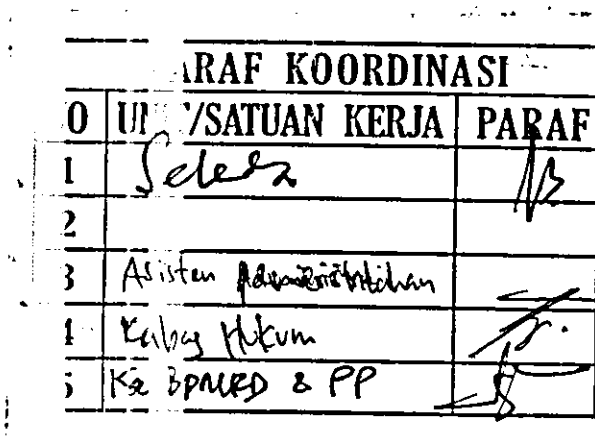 ARAF KOORDINASI
O UNIT/SATUAN KERJA PARAF
1 Sekda
2
3 Asisten
4 Kabag Hukum
5 Ka & PP